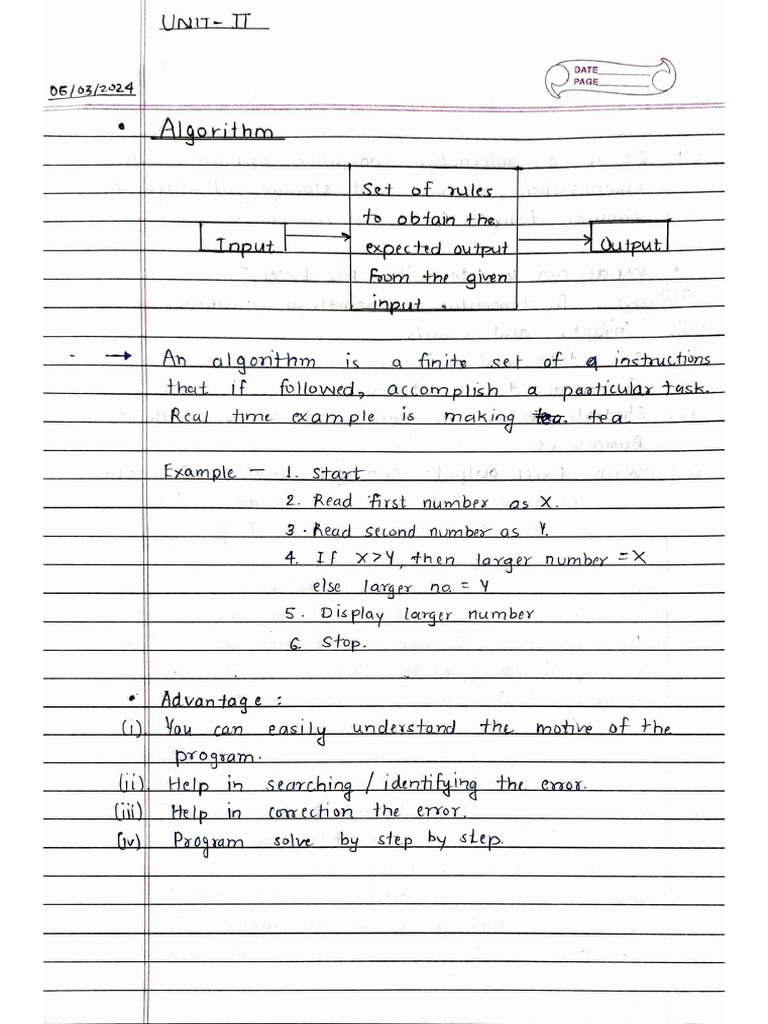 UNIT-II
DATE
PAGE
05/03/2024
• Algorithm
Set of rules
to obtain the
Input
expected output
Output
from the given
input.
→ An algorithm is a finite set of a instructions
that if followed, accomplish a particular task.
Real time example is making tea
Example - 1. Start
2. Read first number as X.
3. Read second number as Y.
4. If X>Y, then larger number = X
else larger no. = Y
5. Display larger number
6. Stop.
• Advantage :
(i) You can easily understand the motive of the
program.
(ii) Help in searching / identifying the error.
(iii) Help in correction the error.
(iv) Program solve by step by step.